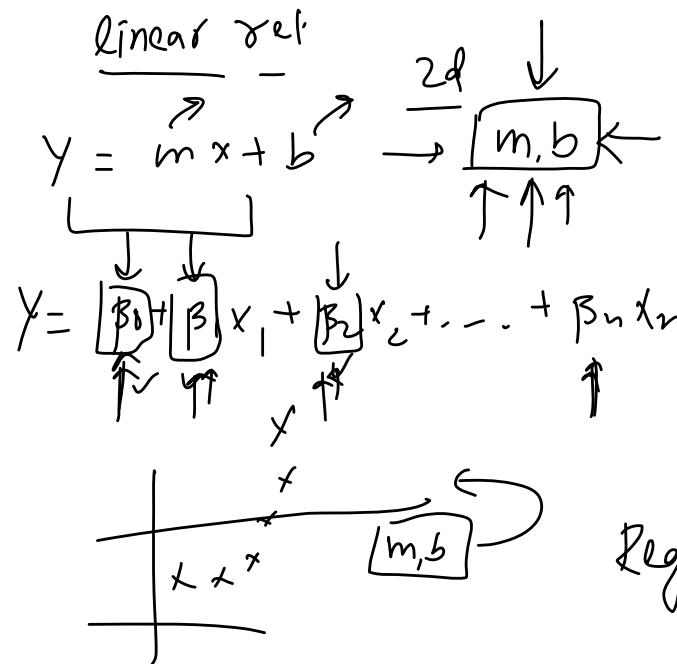 linear rel
2d
y = mx + b
m, b
Y = β0 + β x1 + β2 x2 + .... + βn xn
m, b
Reg